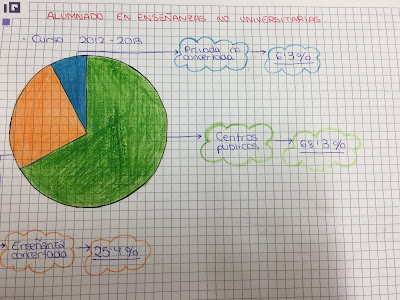 ALUMNADO EN ENSEÑANZAS NO UNIVERSITARIAS
· Curso 2012-2013
Privada no
concertada
6'3%
Centros
públicos
68'3%
Enseñanza
concertada
25'4%